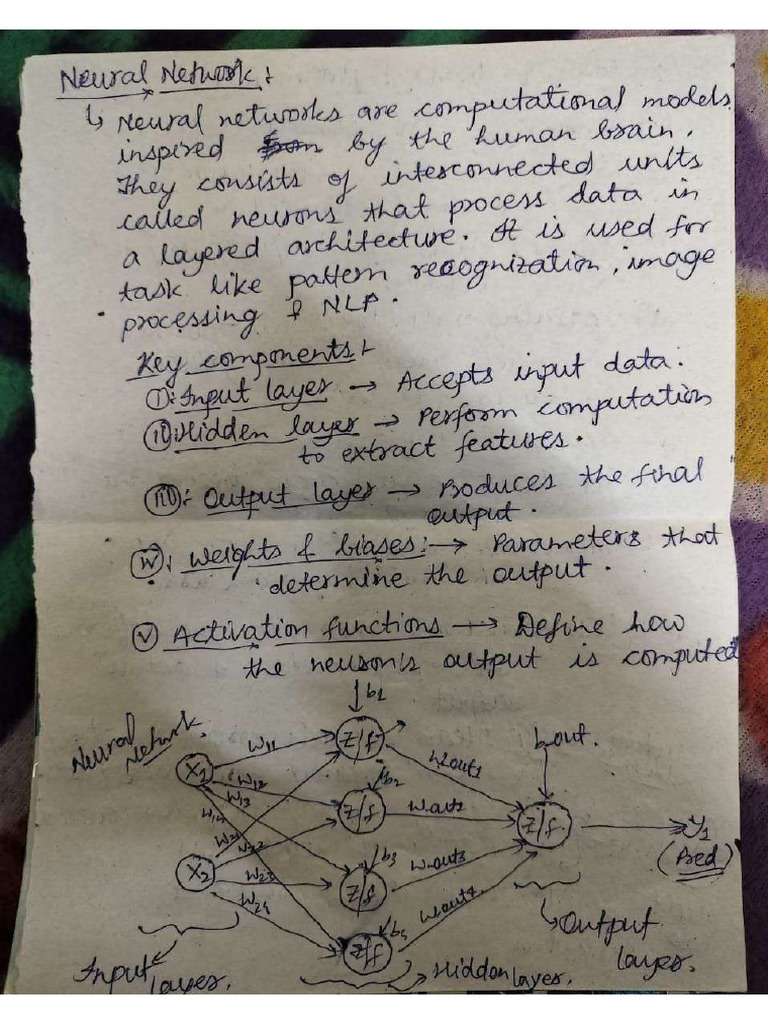 Neural Network:
↳ Neural networks are computational models
inspired by the human brain.
They consists of interconnected units
called neurons that process data in
a layered architecture. It is used for
task like pattern recognization, image
processing & NLP.
Key components:-
(i): Input layer → Accepts input data.
(ii): Hidden layer → Perform computation
to extract features.
(iii): Output layer → Produces the final
output.
(iv): Weights & biases: → Parameters that
determine the output.
(v) Activation functions → Define how
the neuron's output is computed
Neural Network.
b1
X1
w11
w12
w13
w14
Z/f
wout1
bout.
b2
Z/f
wout2
Z/f
y1
(Pred)
X2
w21
w22
w23
w24
b3
Z/f
wout3
Z/f
wout4
Input layer.
Hidden layer.
Output layer.